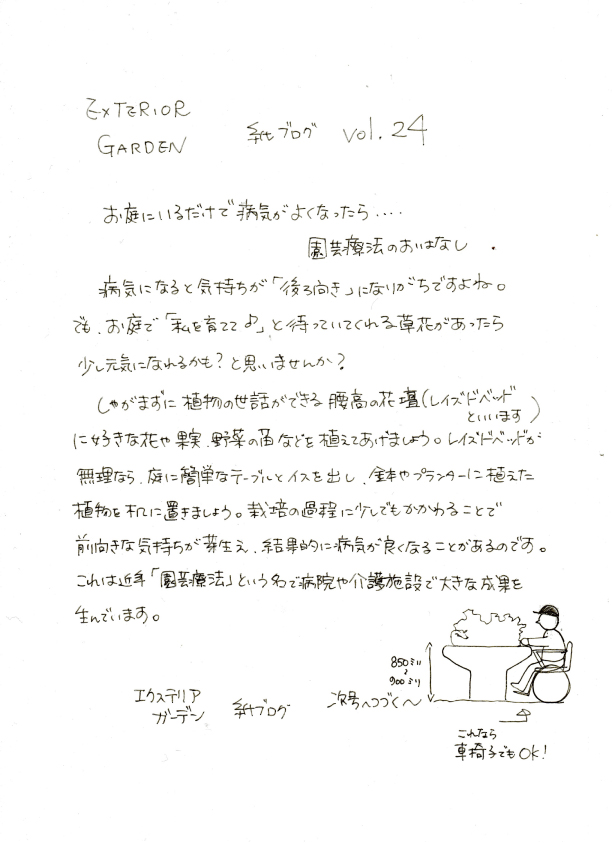 EXTERIOR
GARDEN
紙ブログ vol.24
お庭にいるだけで病気がよくなったら....
園芸療法のおはなし.
病気になると気持ちが「後ろ向き」になりがちですよね。
でも、お庭で「私を育てて♪」と待っていてくれる草花があったら
少し元気になれるかも?と思いませんか?
しゃがまずに植物の世話ができる腰高の花壇(レイズドベッド
といいます)
に好きな花や果実、野菜の苗などを植えてあげましょう。レイズドベッドが
無理なら、庭に簡単なテーブルとイスを出し、鉢やプランターに植えた
植物を机に置きましょう。栽培の過程に少しでもかかわることで
前向きな気持ちが芽生え、結果的に病気が良くなることがあるのです。
これは近年「園芸療法」という名で病院や介護施設で大きな成果を
生んでいます。
850ミリ
〜
900ミリ
エクステリア
ガーデン
紙ブログ
次号へつづく〜
これなら
車椅子でもOK!